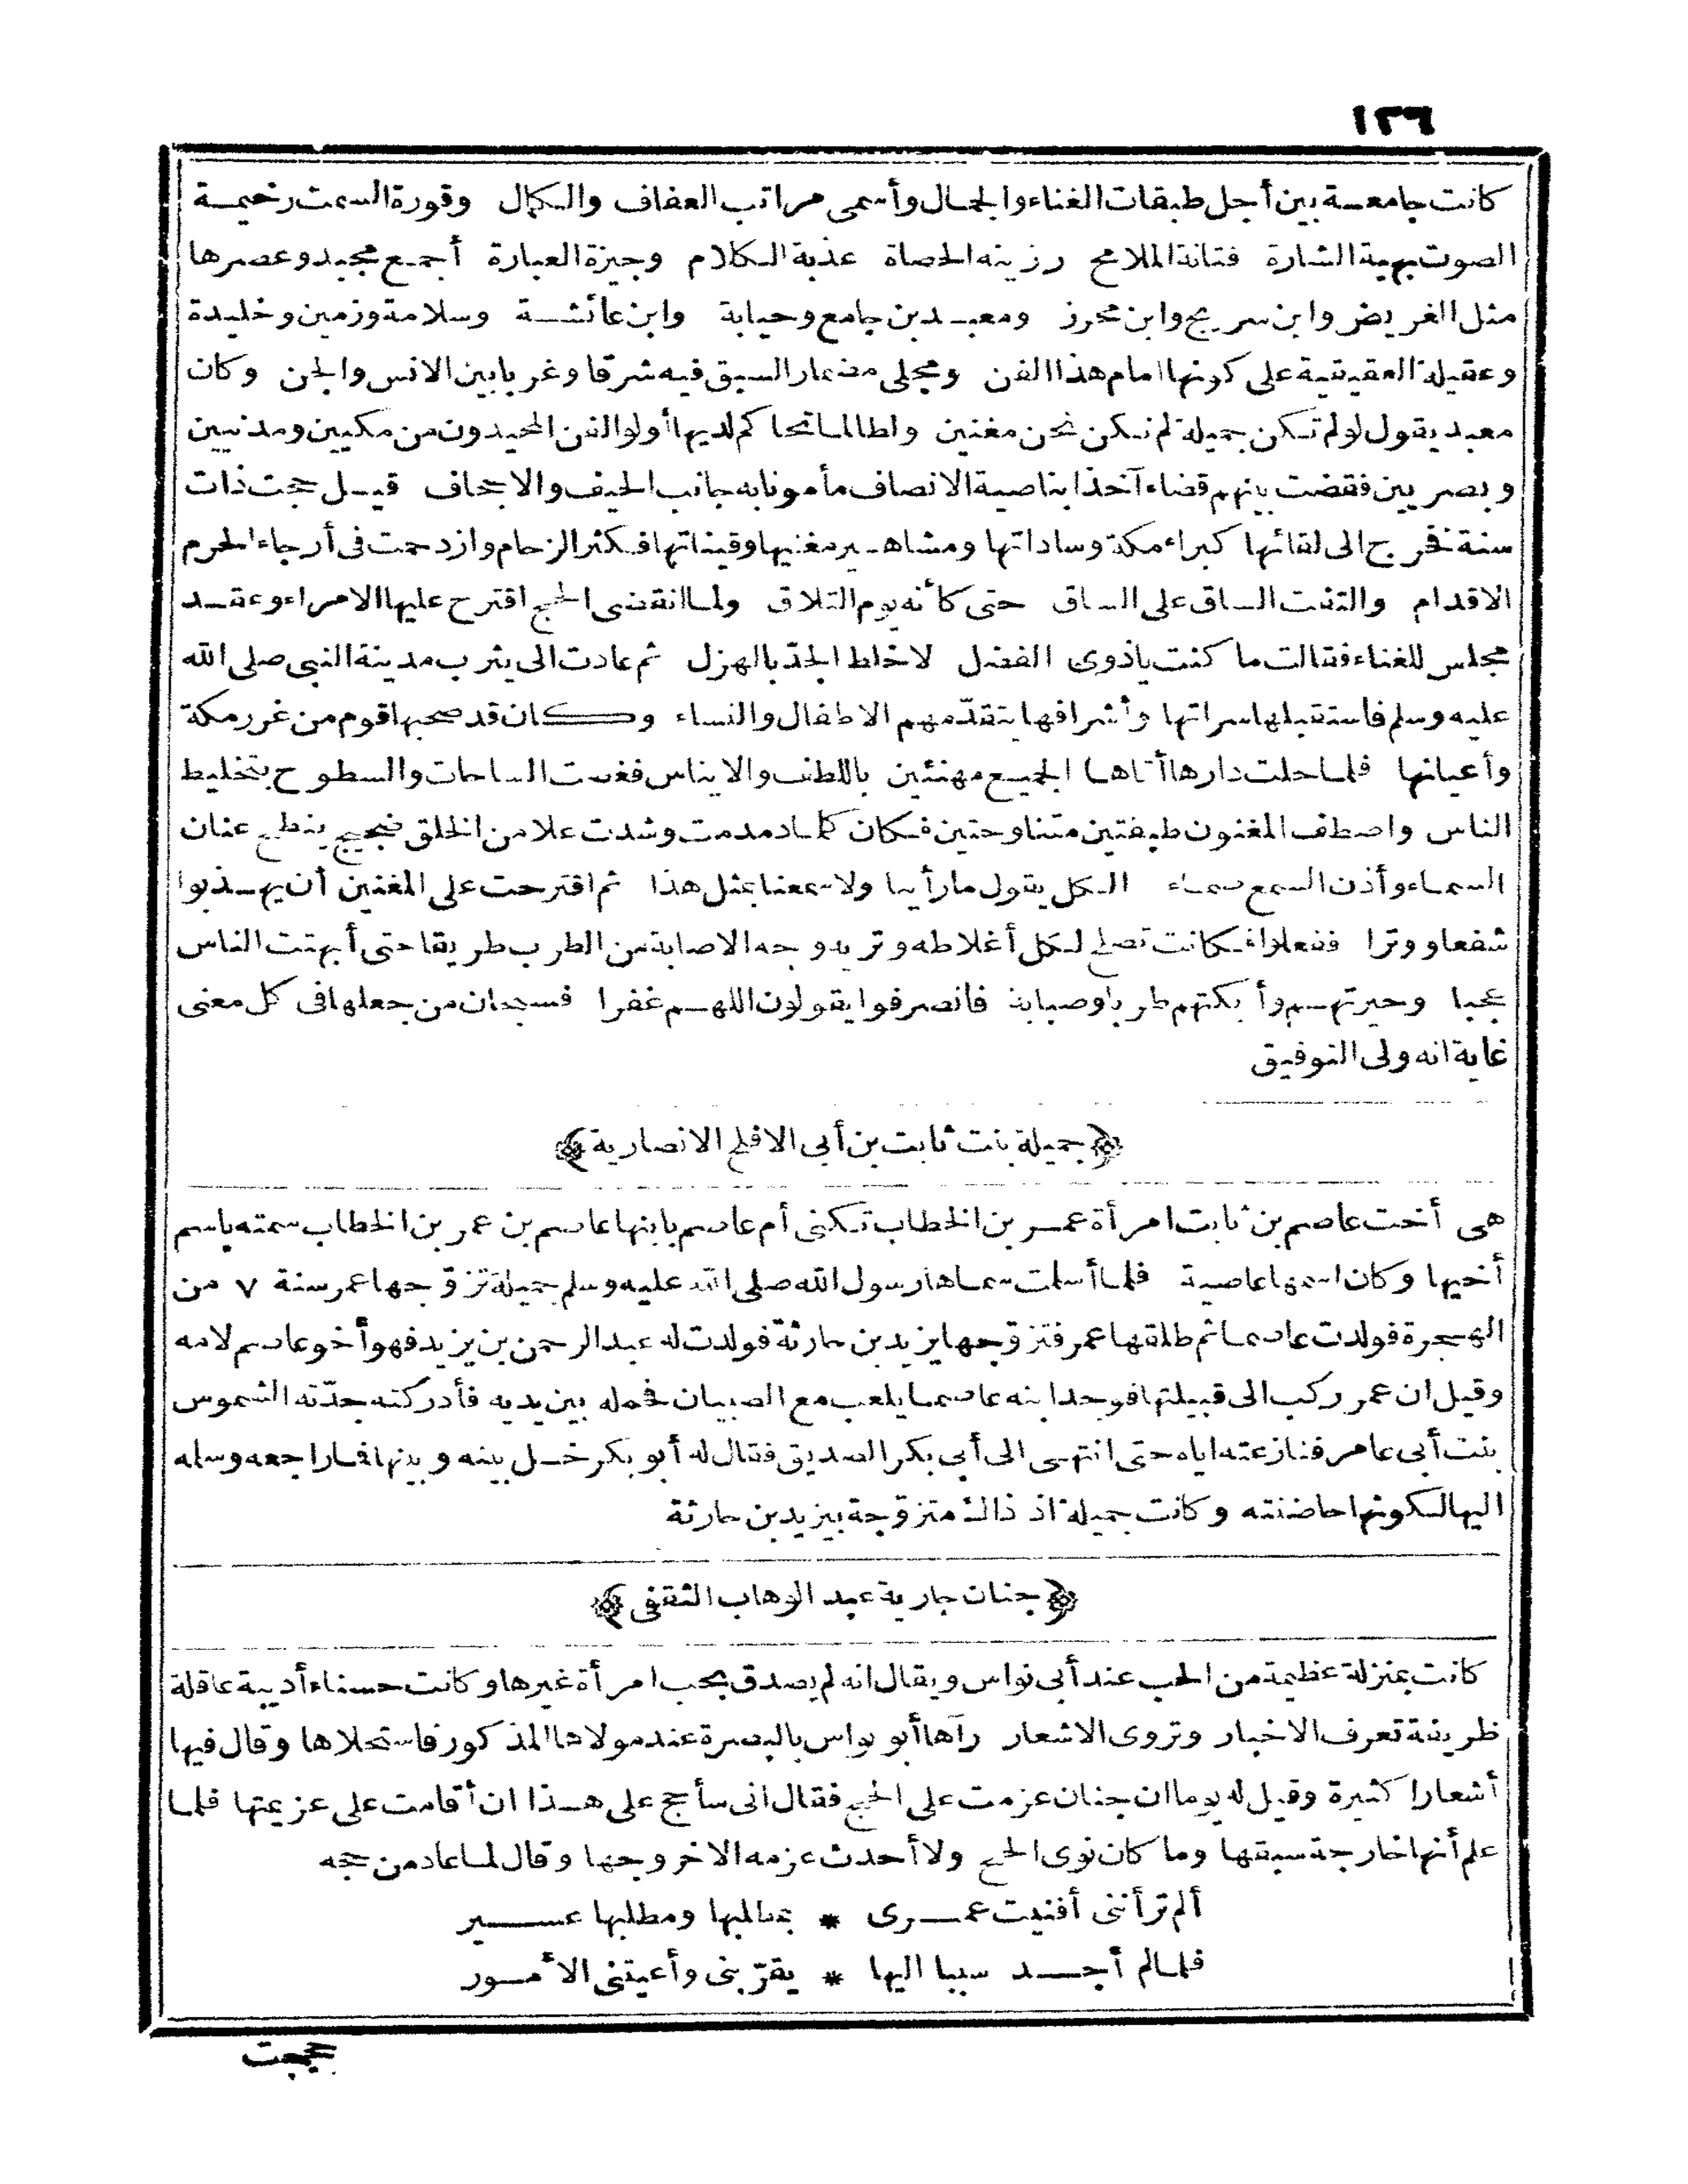 ١٢٦
كانت جامعة بين أجل طبقات الغناء والجمال وأسمى مراتب العفاف والكمال وقورة السمت رخيمة
الصوت بهية الشارة فتانة الملامح رزينه الحصاة عذبة الكلام وجيزة العبارة أجمع مجيدو عصرها
مثل الغريض وابن سريج وابن محرز ومعبد بن جامع وحبابة وابن عائشة وسلامة وزمين وخليدة
وعقيلة العقيقية على كونها امام هذا الفن ومجلى مضمار السبق فيه شرقا وغربا بين الانس والجن وكان
معبد يقول لو لم تكن جميلة لم نكن نحن مغنين ولطالما تحاكم لديها أولو الفن المجيدون من مكيين ومدنيين
وبصريين فقضت بينهم قضاء آخذا بناصية الانصاف مأمونا به جانب الحيف والاجحاف قيل حجت ذات
سنة فخرج الى لقائها كبراء مكة وساداتها ومشاهير مغنيها وقيناتها فكثر الزحام وازدحمت فى أرجاء الحرم
الاقدام والتفت الساق على الساق حتى كأنه يوم التلاق ولما انقضى الحج اقترح عليها الامراء وعقد
مجلس للغناء فقالت ما كنت يا ذوى الفضل لاخلط الجدّ بالهزل ثم عادت الى يثرب مدينة النبى صلى الله
عليه وسلم فاستقبلها سراتها وأشرافها يتقدّمهم الاطفال والنساء وكان قد صحبها قوم من غرر مكة
وأعيانها فلما حلت دارها أتاها الجميع مهنئين باللطف والايناس فغصت الساحات والسطوح بتخليط
الناس واصطف المغنون طبقتين متناوحتين فكان كلما دمدمت وشدت علا من الخلق ضجيج ينطح عنان
السماء وأذن السمع صماء الكل يقول ما رأينا ولا سمعنا بمثل هذا ثم اقترحت على المغنين أن يهذبوا
شفعا ووترا ففعلوا فكانت تصلح لكل أغلاطه وتريه وجه الاصابة من الطرب طريقا حتى أبهتت الناس
عجبا وحيرتهم وأبكتهم طربا وصبابة فانصرفوا يقولون اللهم غفرا فسبحان من جعلها فى كل معنى
غاية انه ولى التوفيق
﴿جميلة بنت ثابت بن أبى الافلح الانصارية﴾
هى أخت عاصم بن ثابت امرأة عمر بن الخطاب تكنى أم عاصم بابنها عاصم بن عمر بن الخطاب سمته باسم
أخيها وكان اسمها عاصية فلما أسلمت سماها رسول الله صلى الله عليه وسلم جميلة تزوّجها عمر سنة ٧ من
الهجرة فولدت عاصما ثم طلقها عمر فتزوّجها يزيد بن حارثة فولدت له عبد الرحمن بن يزيد فهو أخو عاصم لامه
وقيل ان عمر ركب الى قبيلتها فوجد ابنه عاصما يلعب مع الصبيان فحمله بين يديه فأدركته جدّته الشموس
بنت أبى عامر فنازعته اياه حتى انتهى الى أبى بكر الصديق فقال له أبو بكر خل بينه وبينها فما راجعه وسلمه
اليها لكونها حاضنته وكانت جميلة اذ ذاك متزوّجة بيزيد بن حارثة
﴿جنان جارية عبد الوهاب الثقفى﴾
كانت بمنزلة عظيمة من الحب عند أبى نواس ويقال انه لم يصدق بحب امرأة غيرها وكانت حسناء أديبة عاقلة
ظريفة تعرف الاخبار وتروى الاشعار رآها أبو نواس بالبصرة عند مولاها المذكور فاستحلاها وقال فيها
أشعارا كثيرة وقيل له يوما ان جنان عزمت على الحج فقال انى سأحج على هذا ان أقامت على عزيمتها فلما
علم أنها خارجة سبقها وما كان نوى الحج ولا أحدث عزمه الا خروجها وقال لما عاد من حجه
ألم تر أننى أفنيت عمرى * بمطلبها ومطلبها عسير
فلما لم أجد سببا اليها * يقرّبنى وأعيتنى الأمور
حججت